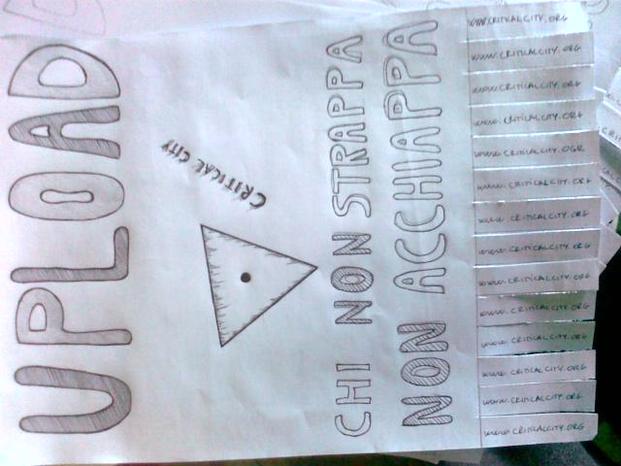 UPLOAD
CRITICAL CITY
CHI NON STRAPPA
NON ACCHIAPPA
www.CRITICALCITY.ORG
www.CRITICALCITY.ORG
www.CRITICALCITY.ORG
www.CRITICALCITY.ORG
www.CRITICALCITY.ORG
www.CRITICALCITY.ORG
www.CRITICALCITY.ORG
www.CRITICALCITY.ORG
www.CRITICALCITY.ORG
www.CRITICALCITY.OGR
www.CRITICALCITY.ORG
www.CRITICALCITY.ORG
www.CRITICALCITY.ORG
www.CRITICALCITY.ORG